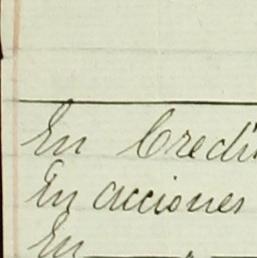 En Credi
En acciones
En